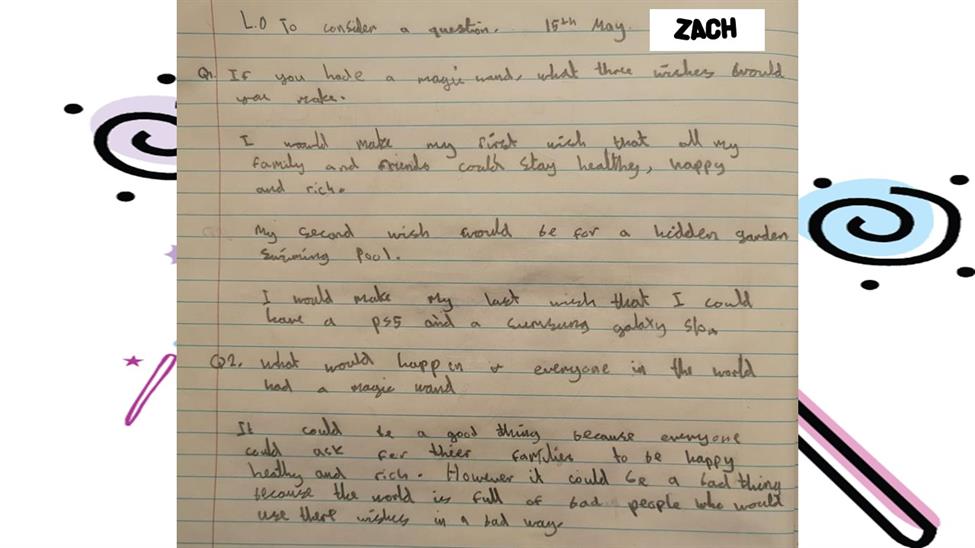 L.O To consider a question. 15th May.
ZACH
Q1. If you hade a magic wand, what three wishes would
you make.
I would make my first wish that all my
family and friends could stay healthy, happy
and rich.
My second wish would be for a hidden garden
swiming pool.
I would make my last wish that I could
have a ps5 and a sumsung galaxy
Q2. What would happen everyone in the world
had a magic wand
It could be a good thing because everyone
could ask for thier families to be happy
heathy and rich. However it could be a bad thing
because the world is full of bad people who would
use there wishes in a bad way.